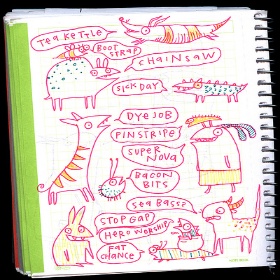 TEA KETTLE
BOOT
STRAP
CHAINSAW
SICK DAY
DYE JOB
PINSTRIPE
SUPER
NOVA
BACON
BITS
SEA BASS?
STOP GAP
HERO WORSHIP
FAT
CHANCE